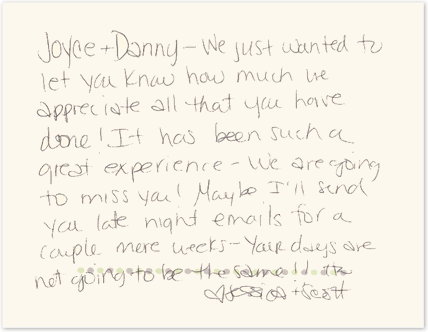 Joyce + Danny - We just wanted to
let you know how much we
appreciate all that you have
done! It has been such a
great experience - We are going
to miss you! Maybe I'll send
you late night emails for a
couple more weeks - Your days are
not going to be the same!!
Jessica + Scott